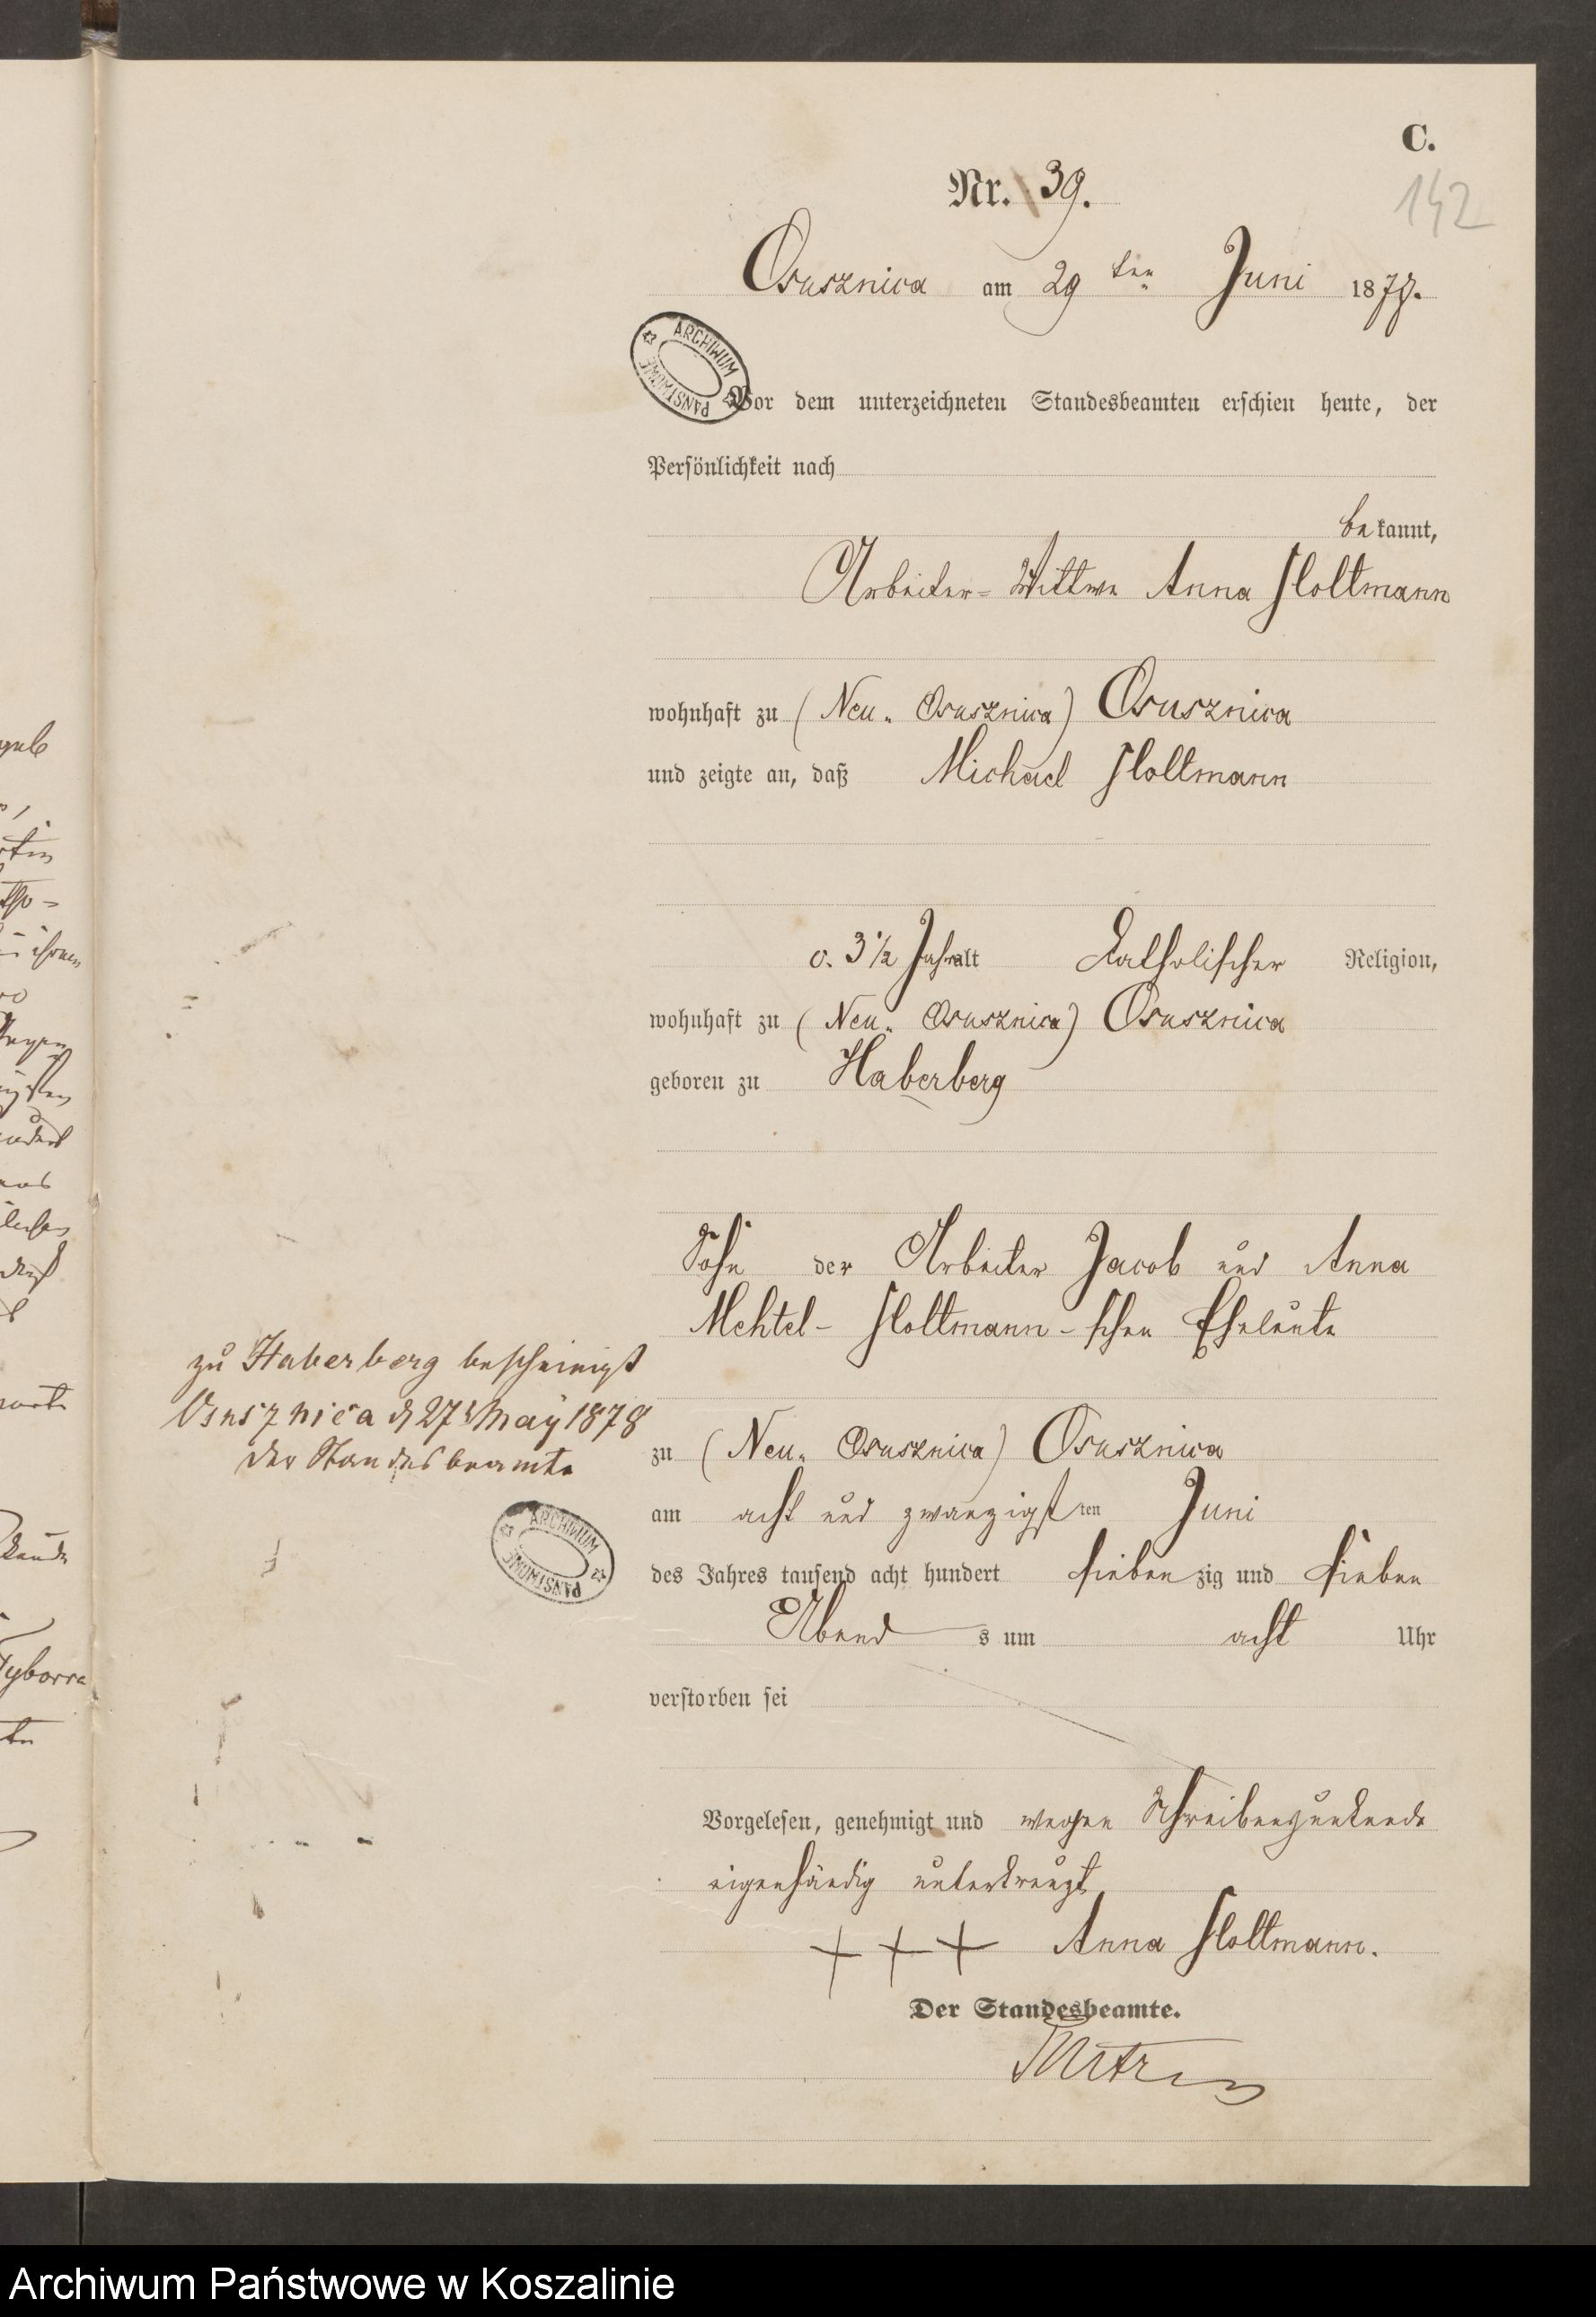 C.
142
Nr. 39.
Osusznica am 29 ten Juni 1877.
ARCHIWUM PAŃSTWOWE
Vor dem unterzeichneten Standesbeamten erschien heute, der
Persönlichkeit nach
be kannt,
Arbeiter-Wittwe Anna Holtmann
wohnhaft zu (Neu-Osusznica) Osusznica
und zeigte an, daß Michael Holtmann
c. 3 1/2 Jahr alt Katholischer Religion,
wohnhaft zu (Neu-Osusznica) Osusznica
geboren zu Haberberg
Sohn der Arbeiter Jacob und Anna
Mehtel-Holtmann-schen Eheleute
zu Haberberg bescheinigt
Osusznica d 27t May 1878
der Standesbeamte
zu (Neu-Osusznica) Osusznica
am acht und zwanzigst ten Juni
des Jahres tausend acht hundert sieben zig und sieben
Abend s um acht Uhr
verstorben sei
ARCHIWUM PAŃSTWOWE
Vorgelesen, genehmigt und wegen Schreibensunkunde
eigenhändig unterkreuzt
+ + + Anna Holtmann.
Der Standesbeamte.
Archiwum Państwowe w Koszalinie